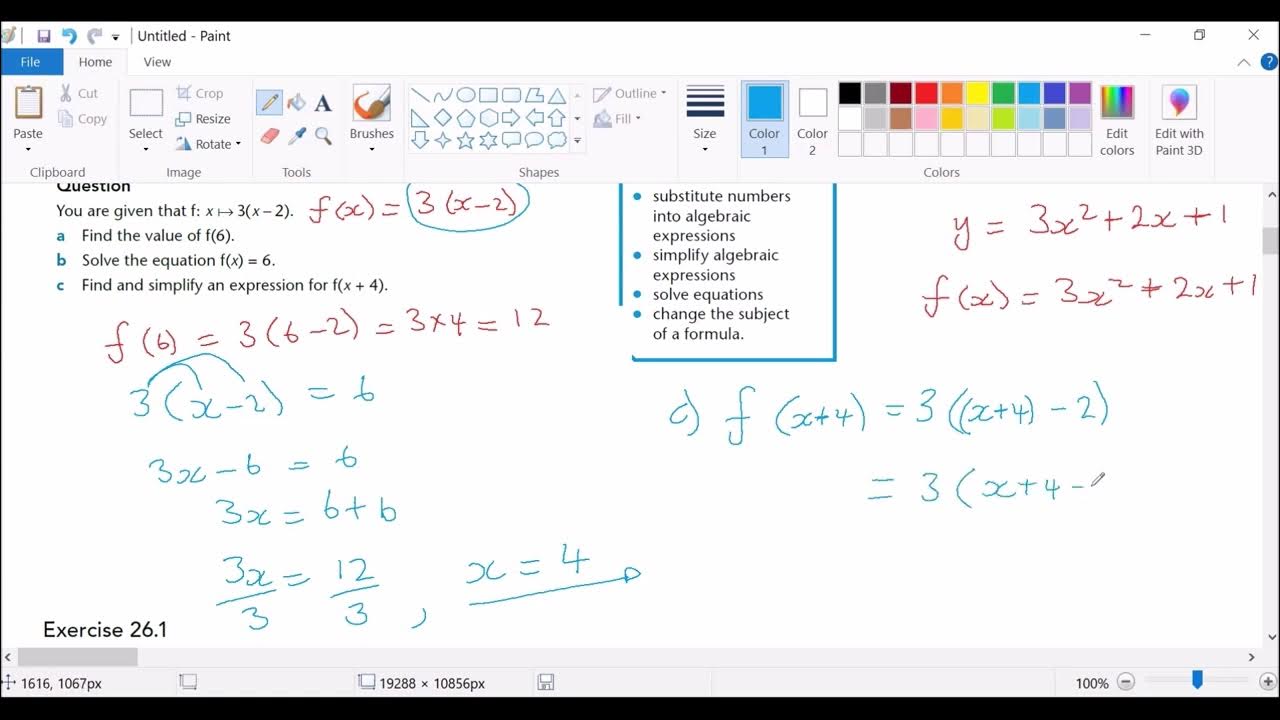 Untitled - Paint
File Home View
Paste Cut Copy Select Crop Resize Rotate Brushes Outline Fill Size Color 1 Color 2 Edit colors Edit with Paint 3D
Clipboard Image Tools Shapes Colors
Question
You are given that f: x ↦ 3(x – 2). f(x) = 3(x-2)
a Find the value of f(6).
b Solve the equation f(x) = 6.
c Find and simplify an expression for f(x + 4).
f(6) = 3(6-2) = 3×4 = 12
3(x-2) = 6
3x-6 = 6
3x = 6+6
3x/3 = 12/3 , x = 4
Exercise 26.1
• substitute numbers
into algebraic
expressions
• simplify algebraic
expressions
• solve equations
• change the subject
of a formula.
y = 3x²+2x+1
f(x) = 3x²+2x+1
c) f(x+4) = 3((x+4)-2)
= 3(x+4-
1616, 1067px 19288 × 10856px 100%